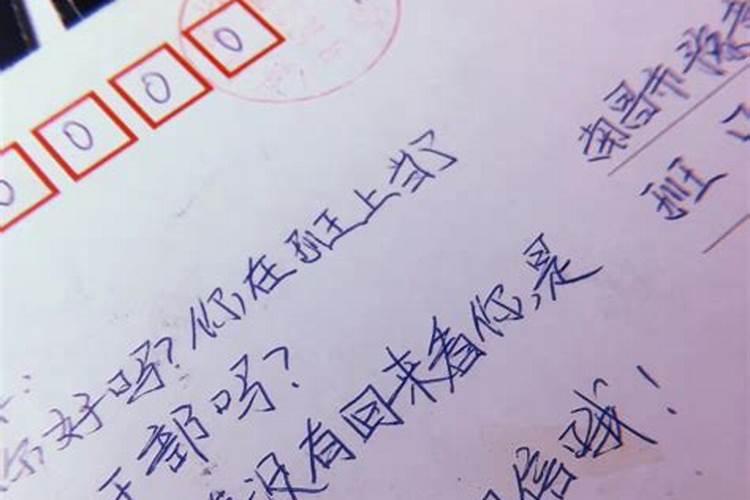 0 0 0 0
南昌市
班
你好吗?你在班上当了
干部吗?
没有回来看你,是
信哦!